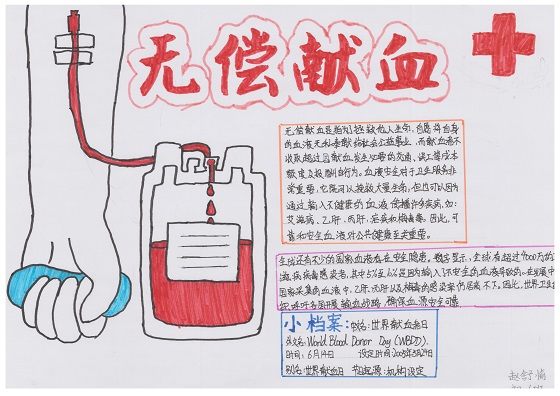 无偿献血
无偿献血是指为拯救他人生命,自愿将自身
的血液无私奉献给社会公益事业,而献血者不
收取超过因献血发生必要的交通、误工等成本
额度及报酬的行为。血液安全对于卫生服务非
常重要,它既可以挽救大量生命,但也可以因为
通过输入不健康的血液传播许多疾病,如:
艾滋病、乙肝、丙肝、疟疾和梅毒。因此,可
靠和安全血液对公共健康至关重要。
全球还有不少的国家血液存在安全隐患,数据显示,全球有超过4900万的
滋病病毒感染者,其中5%至10%是因为输入不安全的血液导致的。在发展中
国家采集的血液中,乙肝、丙肝以及梅毒的感染率仍居高不下。因此,世界卫生
组织呼吁各国开展输血战略,确保血源安全可靠
小档案:别名:世界献血者日
英文名:World Blood Donor Day(WBDD).
时间:6月14日 设定时间2005年5月24日
别名:世界献血日 节日起源:机构设定